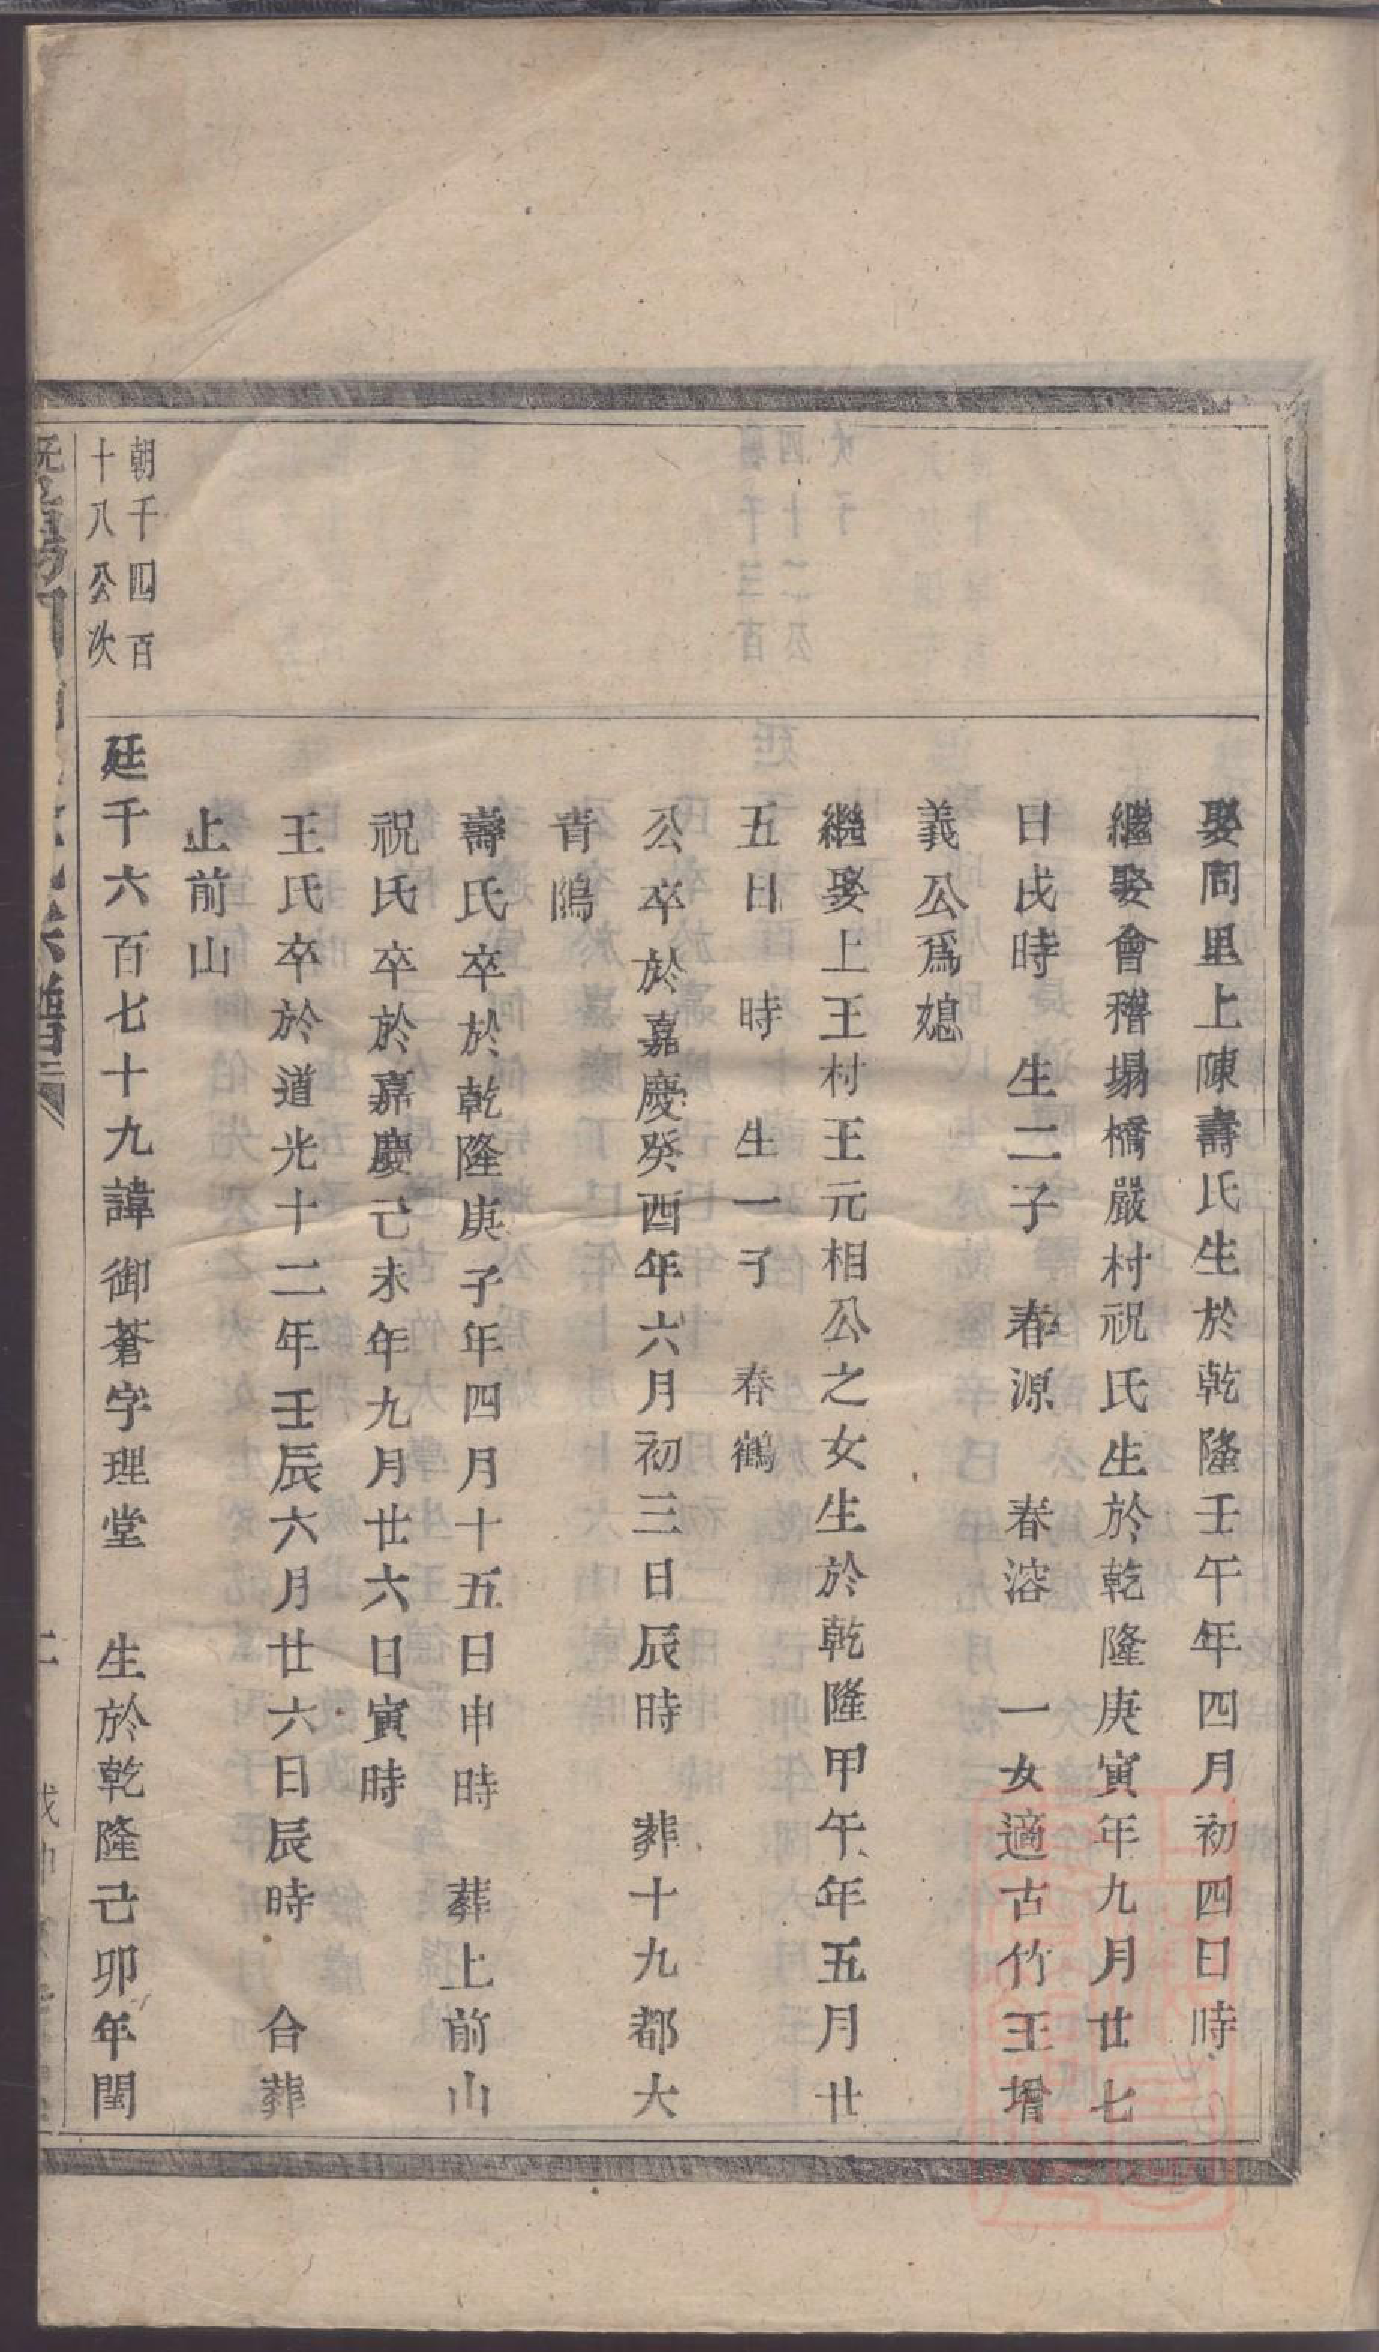 娶同里上陳壽氏生於乾隆壬午年四月初四日時
繼娶會稽塌橋嚴村祝氏生於乾隆庚寅年九月廿七
日戌時　生二子　春源　春溶　一女適古竹王增
義公爲媳
繼娶上王村王元相公之女生於乾隆甲午年五月廿
五日　時　生一子　春鶴
公卒於嘉慶癸酉年六月初三日辰時　葬十九都大
青隝
壽氏卒於乾隆庚子年四月十五日申時　葬上前山
祝氏卒於嘉慶己未年九月廿六日寅時
王氏卒於道光十二年壬辰六月廿六日辰時　合葬
止前山
朝千四百
十八公次
廷千六百七十九諱御蒼字理堂　生於乾隆己卯年閏